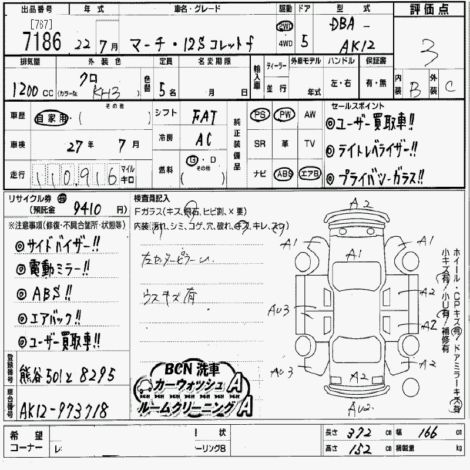 出品番号 年式 車名・グレード 駆動 ドア 型式 評価点
[767]
7186 22年 7月 マーチ・12S コレットf 2WD 4WD 5 DBA - AK12 3
排気量 外装色 色替 定員 名変期限 輸入車 ディーラー 並行 外車モデル ハンドル 保証書 内装 外装
1200 CC クロ (カラーNo. KH3) 5名 月 日 年式 左・右 有・無 B C
車歴 自家用・(その他) シフト FAT 純正装備品 PS PW AW セールスポイント
◎ユーザー買取車!!
車検 27年 7月 冷房 AC SR 革 TV ◎ライトレベライザー!!
走行 110,916 マイル キロ 燃料 G・D (その他) ナビ ABS エアB ◎プライバシーガラス!!
リサイクル券 (預託金 9410 円) 検査員記入
Fガラス(キズ、飛石、ヒビ割、X 要)
※注意事項(修復・不具合箇所・状態等) 内装(汚れ、シミ、コゲ、穴、破れ、キズ、キレ、スレ)
◎サイドバイザー!!
◎電動ミラー!!
◎ABS!!
◎エアバック!!
ウスキズ有
◎ユーザー買取車!!
A1 A2 A1
A1 A2
AU3 A2
AU3 A2 A2
A2
AU2
ホイール・CPキズ有/ドアミラーキズ有
小キズ有/小U有/補修有
登録番号 熊谷 501 と 8295
車台番号 AK12-973718
BCN 洗車
カーウォッシュ A
ルームクリーニング A
希望コーナー 状
ーリング8
長さ 372 cm 幅 166 cm
高さ 152 cm 積載量 kg